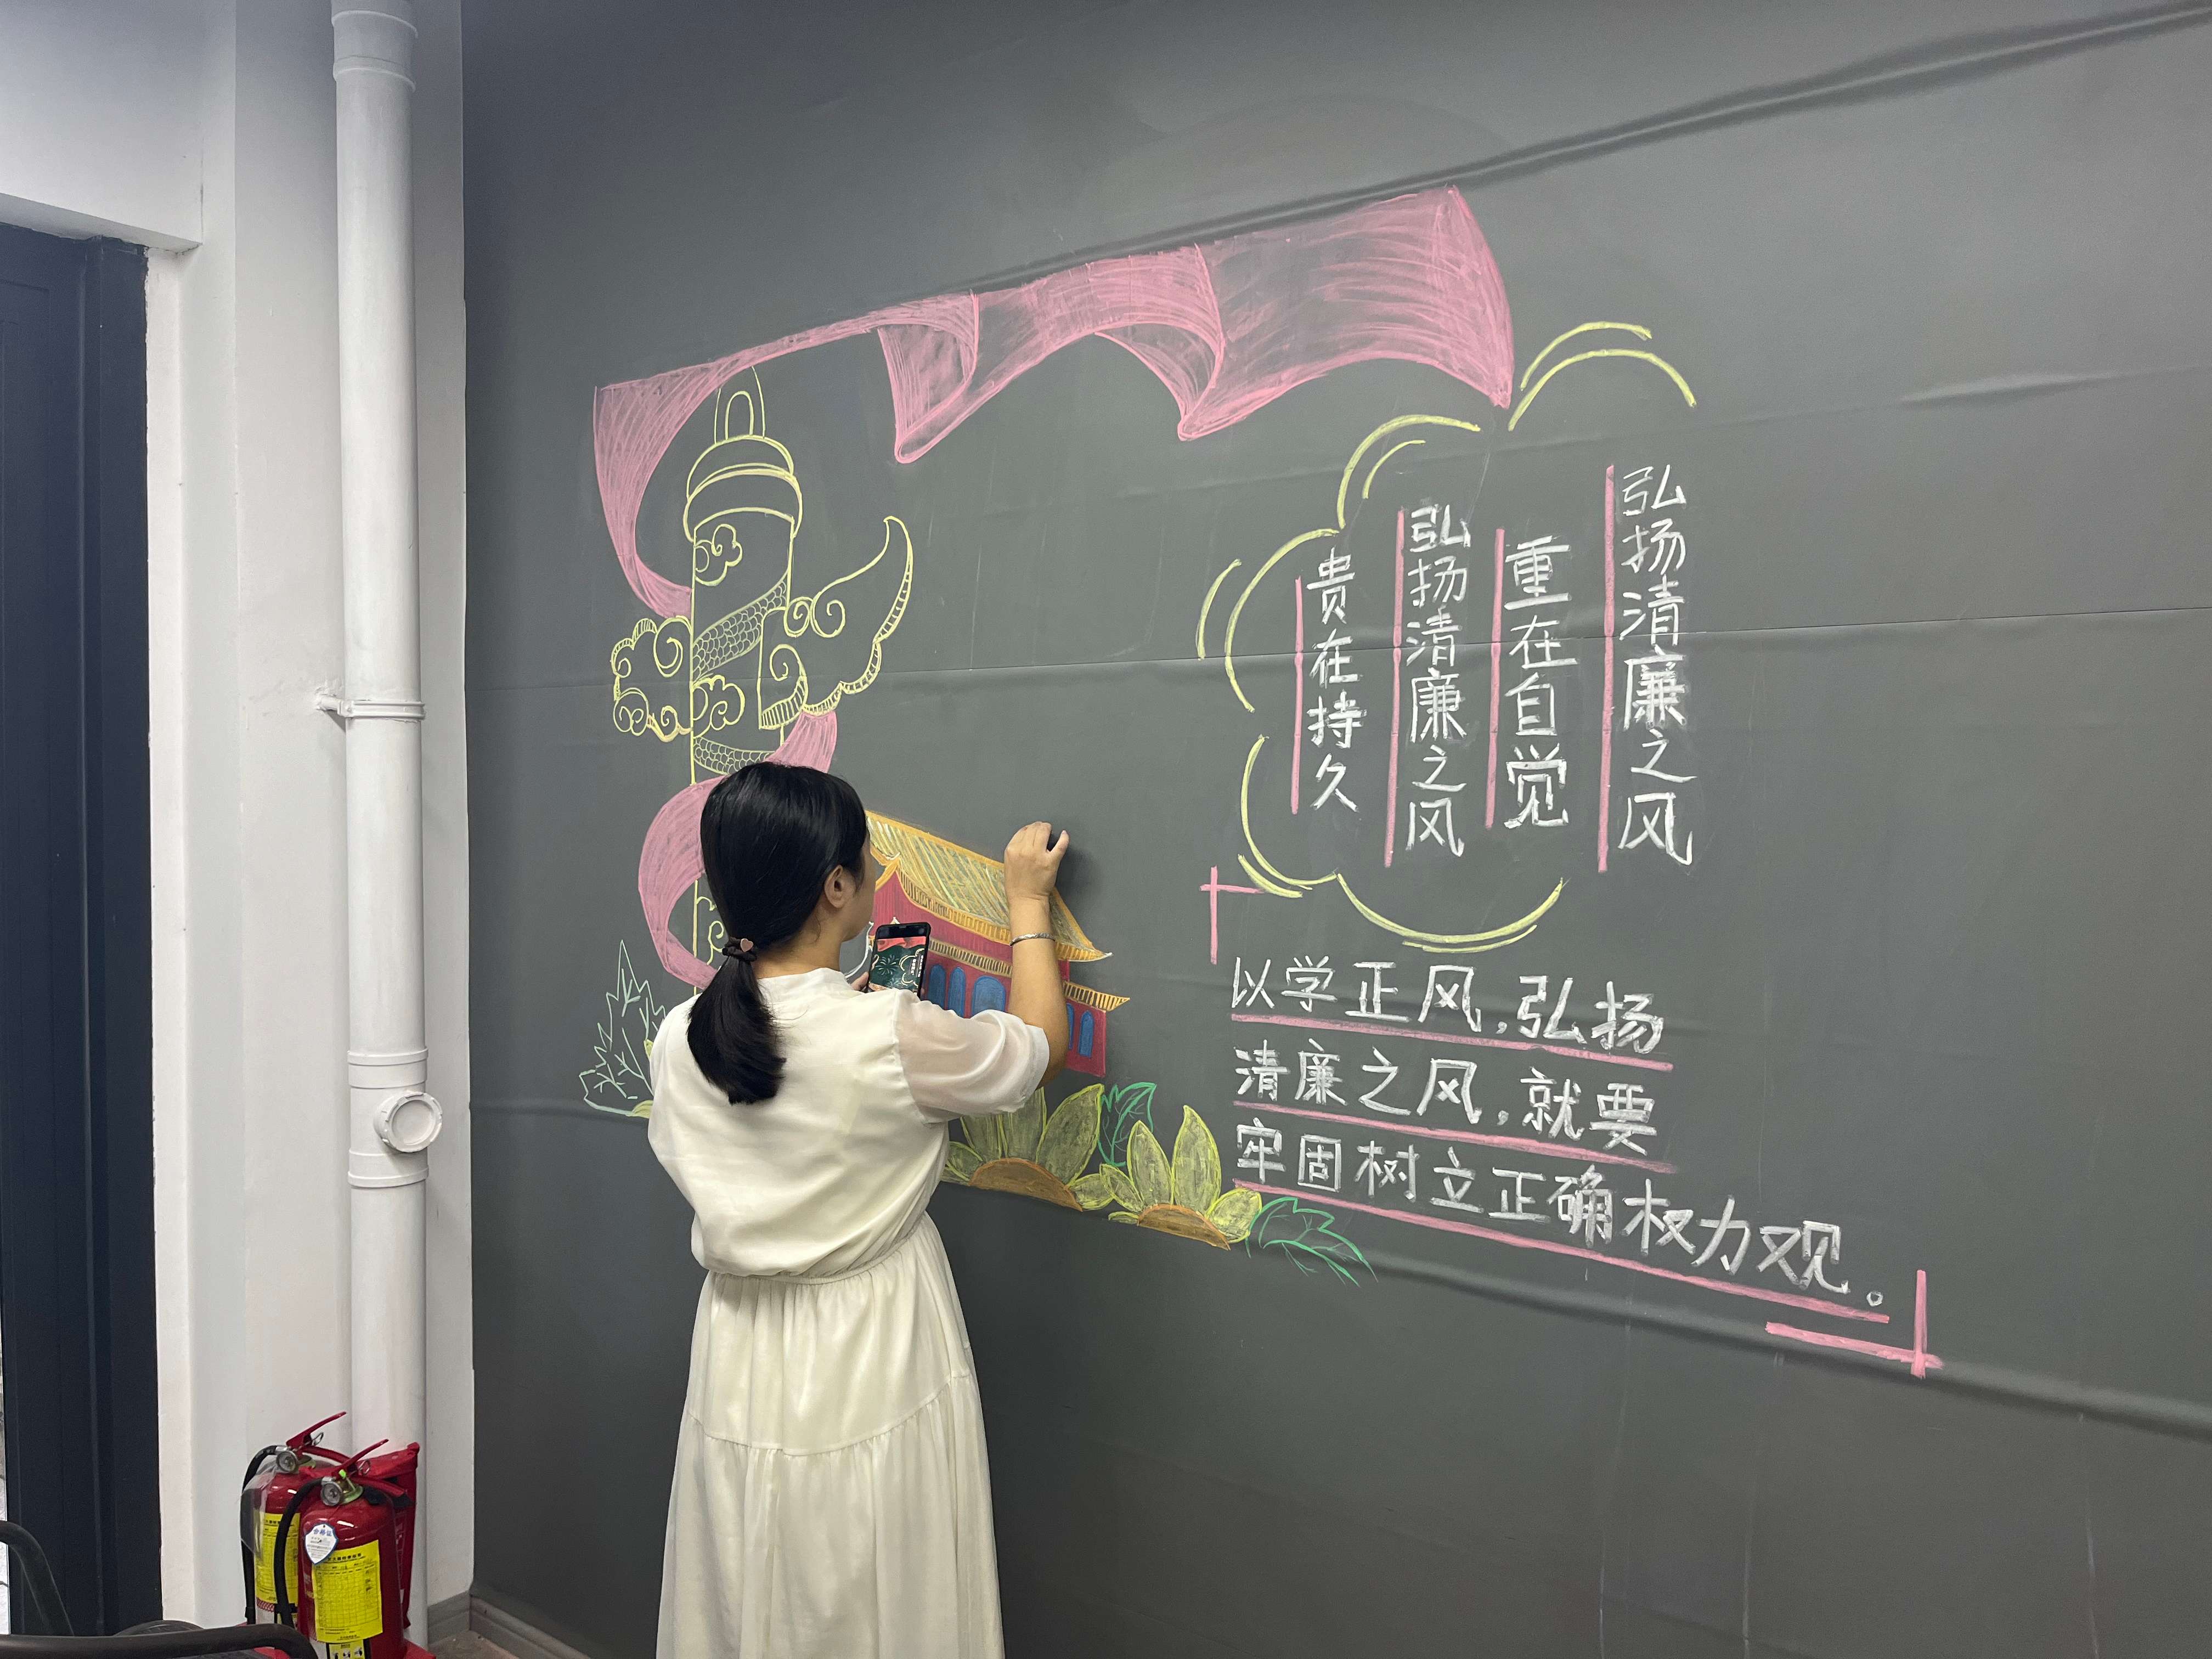 弘扬清廉之风
重在自觉
弘扬清廉之风
贵在持久
以学正风,弘扬
清廉之风,就要
牢固树立正确权力观。